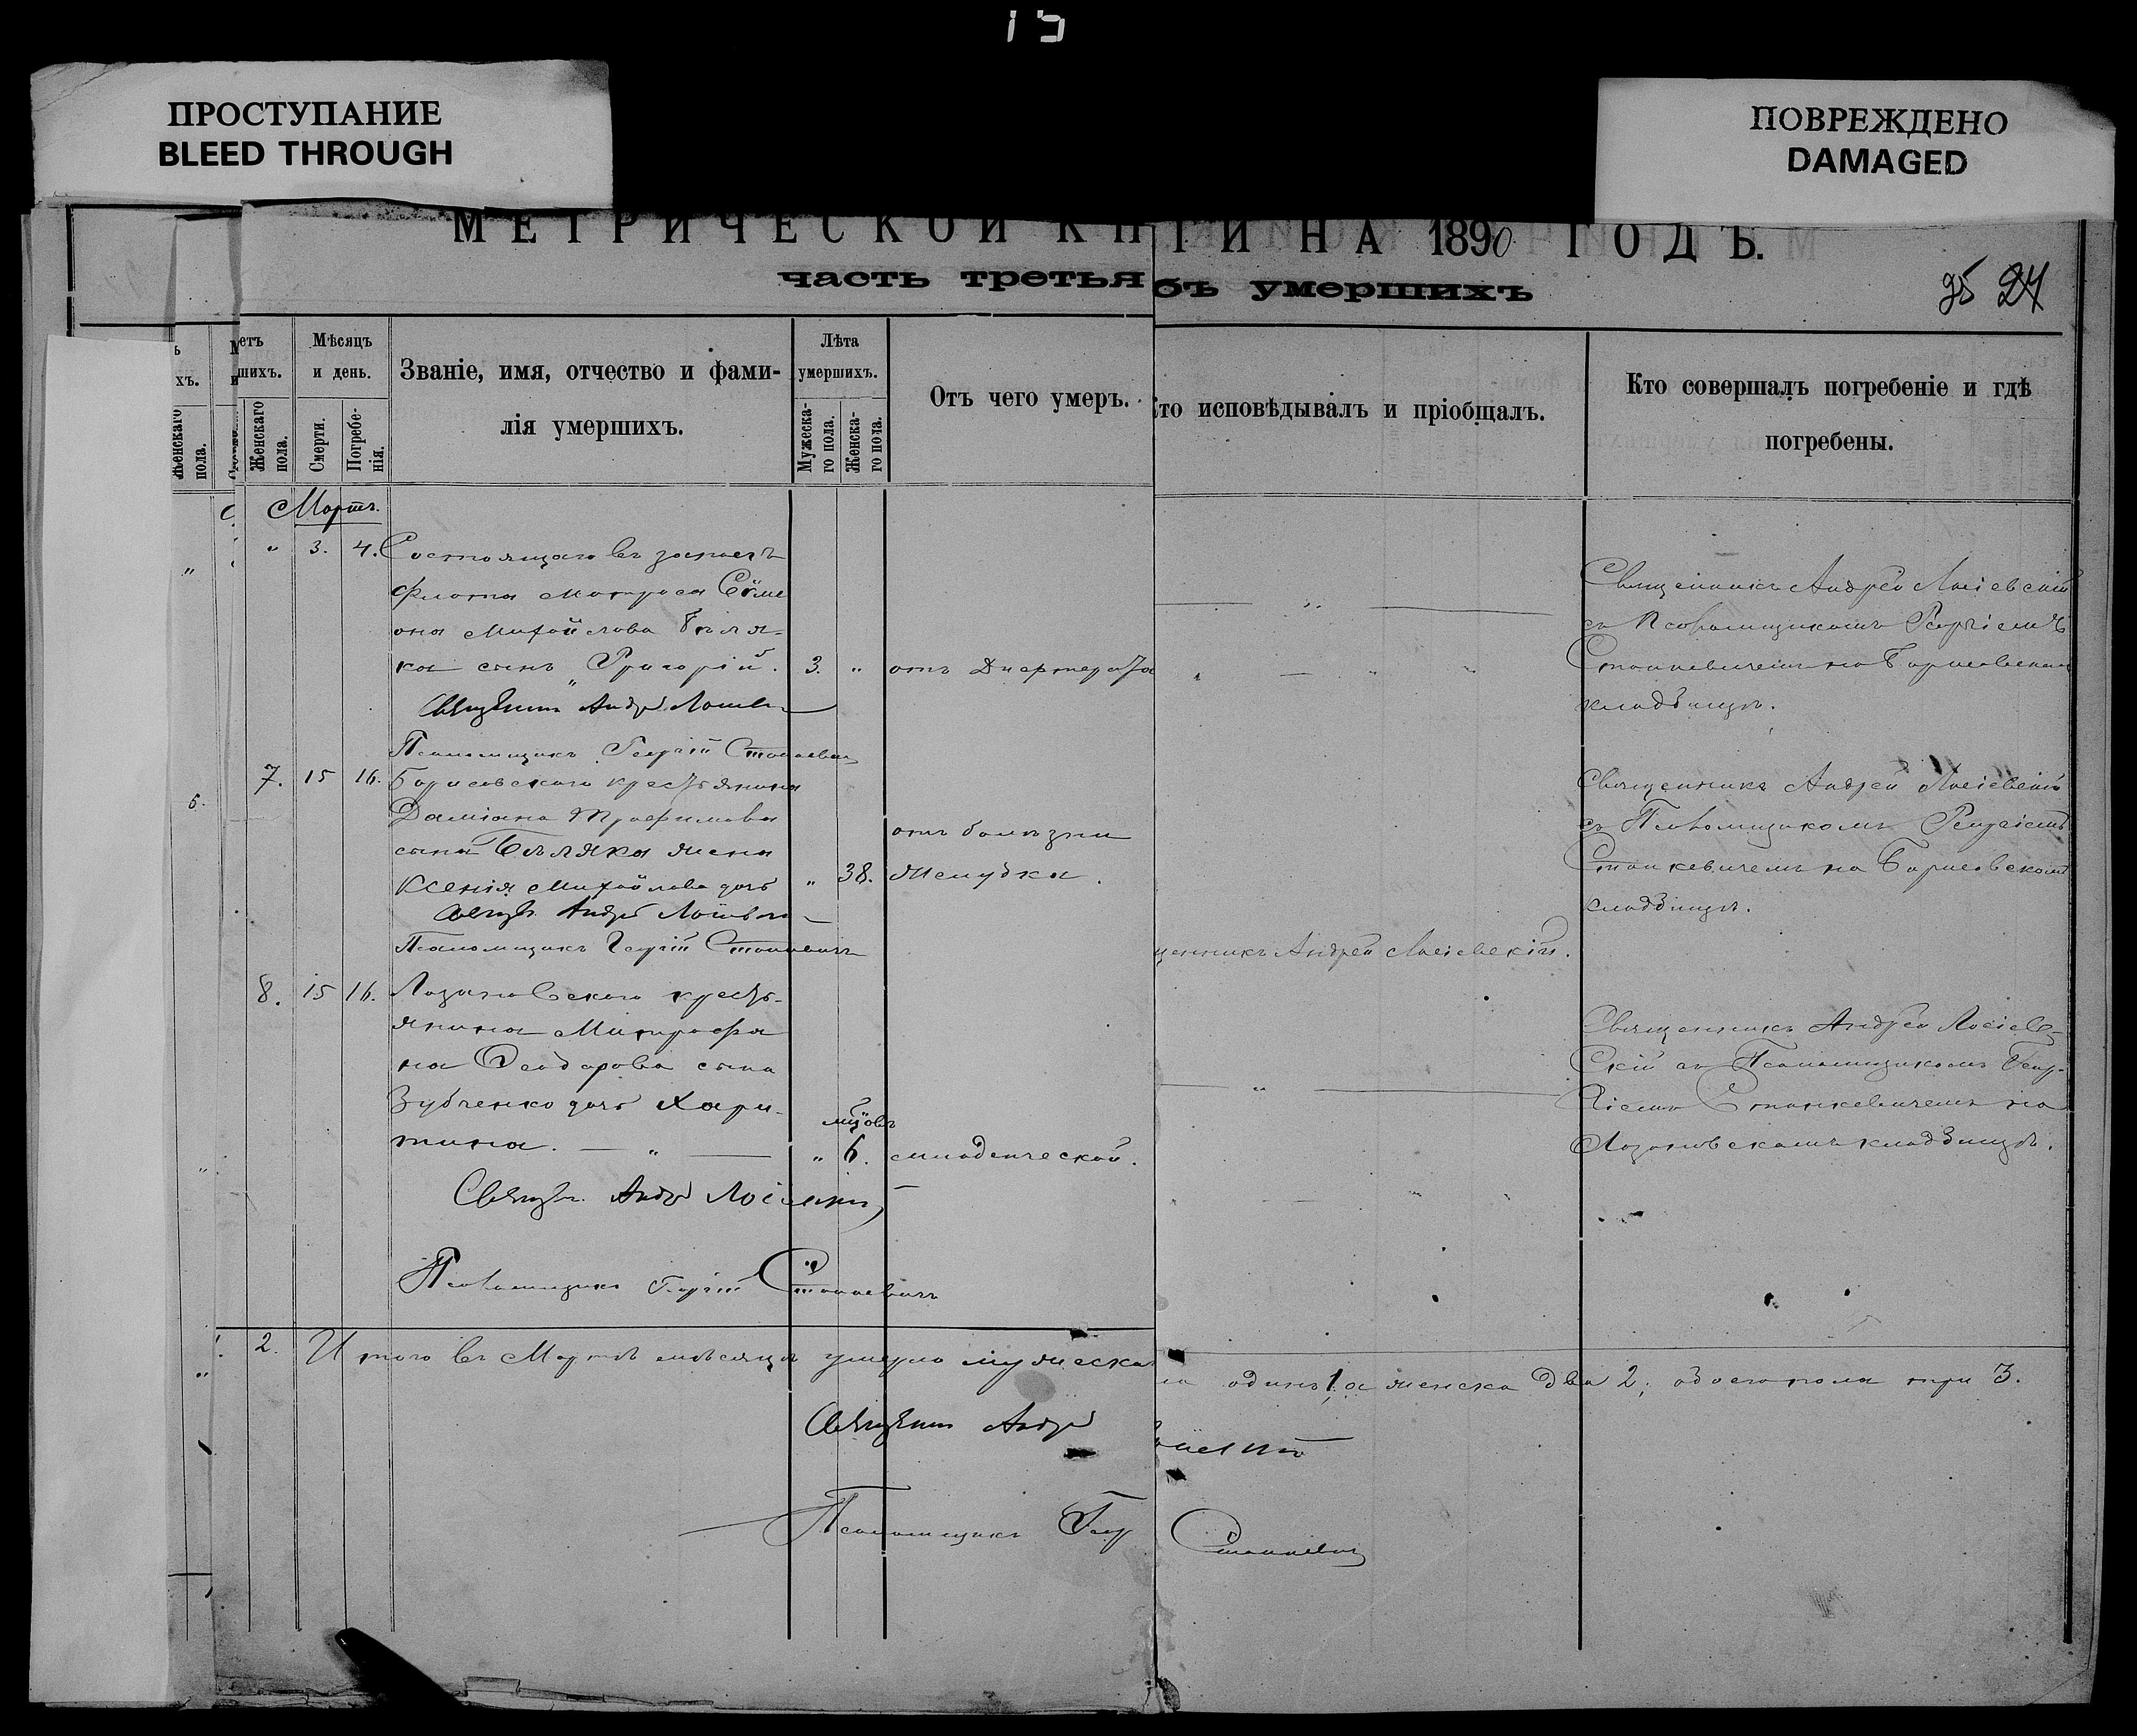 15
ПРОСТУПАНИЕ
BLEED THROUGH
ПОВРЕЖДЕНО
DAMAGED
МЕТРИЧЕСКОЙ КНИГИ НА 1890 ГОДЪ.
часть третья
бъ умершихъ
95 24
етъ
шихъ.
Женскаго пола.
Мѣсяцъ и день.
Смерти.
Погребе-
нія.
Званіе, имя, отчество и фами-
лія умершихъ.
Лѣта умершихъ.
Мужеска-
го пола.
Женска-
го пола.
Отъ чего умеръ.
то исповѣдывалъ и пріобщалъ.
Кто совершалъ погребеніе и гдѣ
погребены.
Женскаго
пола.
хъ.
Мартъ.
" 3. 4. Состоящаго въ запасѣ
флота матроса Симе
она Михайлова Бѣля-
ка сынъ Григорій. 3. " отъ
Священникъ Андрей
Псаломщикъ Георгій Станкевичъ
Священникъ Андрей Лосіевскій
съ Псаломщикомъ Георгіемъ
Станкевичемъ на Борисовскомъ
кладбищѣ.
7. 15 16. Борисовскаго крестьянина
Даміана Трофимова
сына Бѣляка жена
отъ болѣзни
Ксенія Михайлова дочь " 38. желудка.
Андрей
Псаломщикъ Георгій Станкевичъ
щенникъ Андрей Лосіевскій.
Священникъ Андрей Лосіевскій
съ Псаломщикомъ Георгіемъ
Станкевичемъ на Борисовскомъ
кладбищѣ.
8. 15 16. Лозановскаго кресть-
янина Митрофа
на Ѳеодорова сына
Зубченко дочь Хари-
тина. " " 6. младенческой.
Андрей
Псаломщикъ Георгій Станкевичъ
Священникъ Андрей Лосіев-
скій съ Псаломщикомъ Геор-
гіемъ Станкевичемъ на
Лозановскомъ кладбищѣ.
2. Итого въ Мартѣ мѣсяцѣ умерло мужеска
ла одинъ 1, а женска два 2; обоего пола три 3.
Священникъ Андрей
Псаломщикъ Геор
Станкевичъ